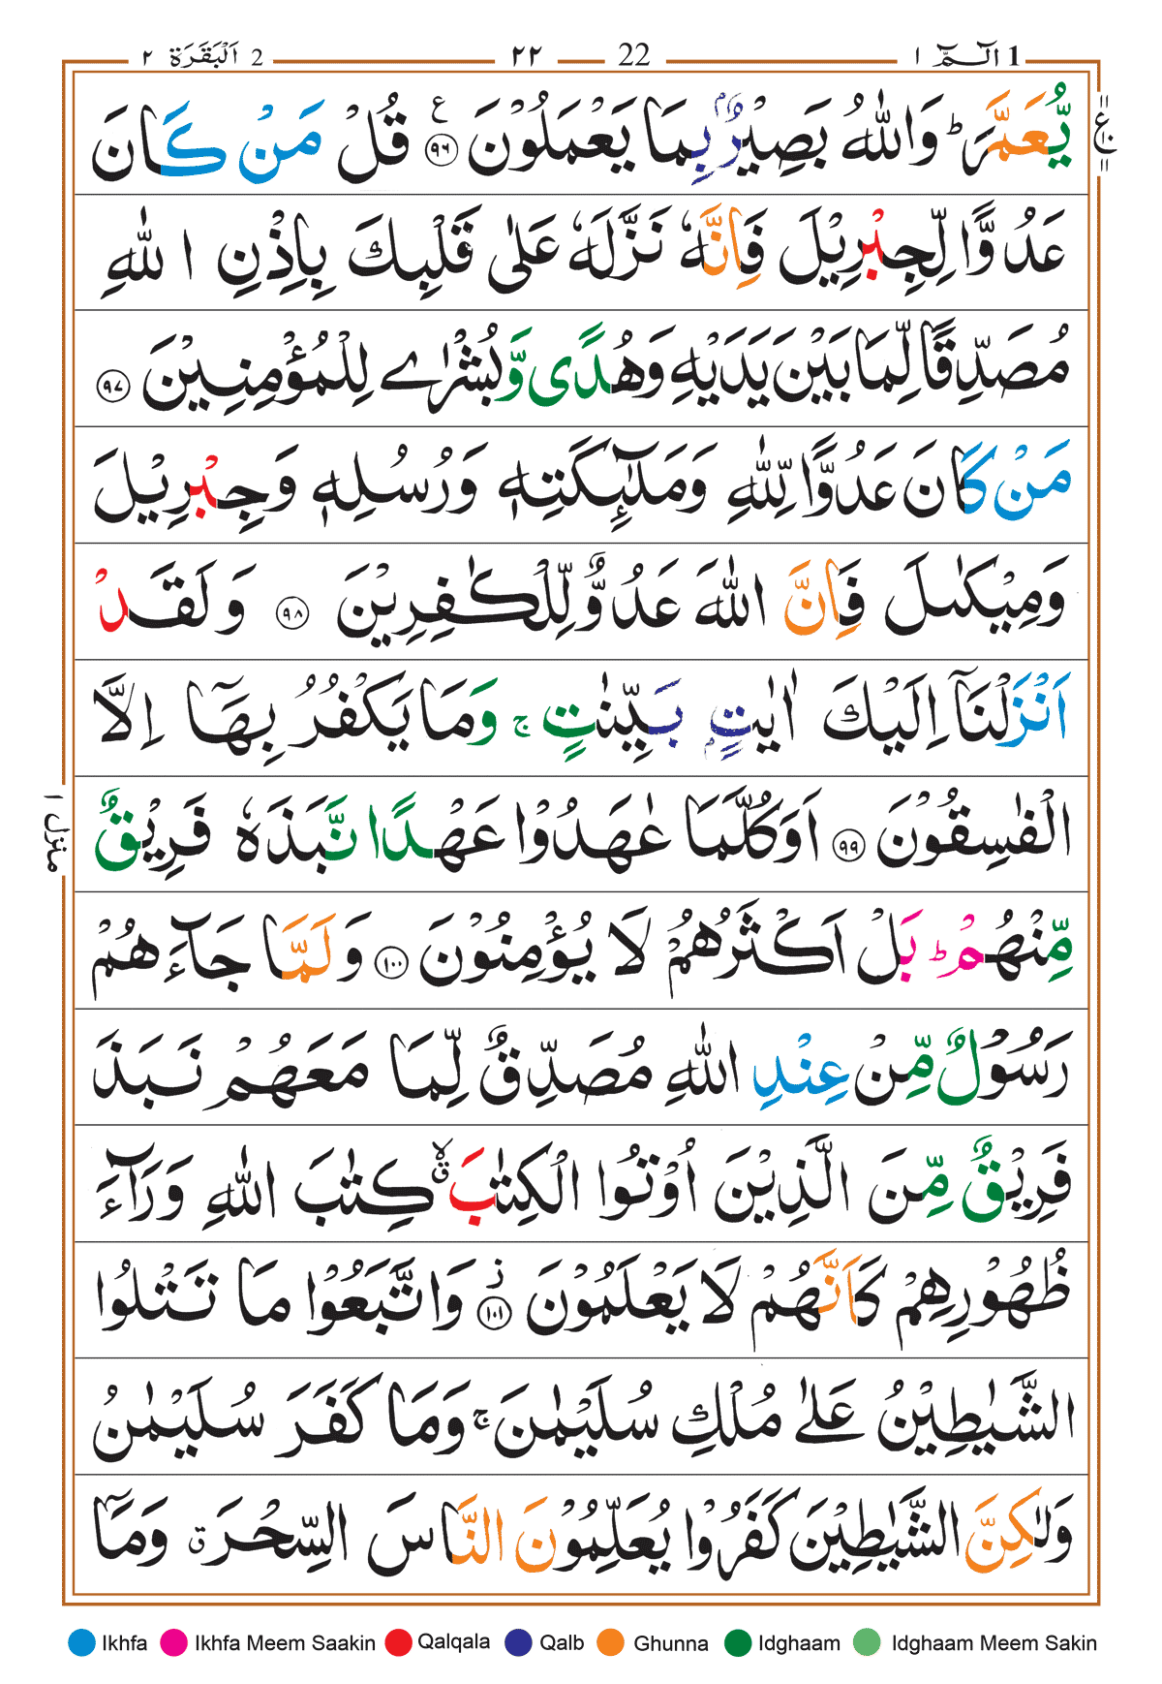 2 اَلْبَقَرَة ٢ ٢٢ 22 1 الٓـمّٓ ١
يُّعَمَّرَ ؕ وَاللّٰهُ بَصِيْرٌۢ بِمَا يَعْمَلُوْنَ ﴿٩٦﴾ ع قُلْ مَنْ كَانَ
عَدُوًّا لِّجِبْرِيْلَ فَاِنَّهٗ نَزَّلَهٗ عَلٰى قَلْبِكَ بِاِذْنِ اللّٰهِ
مُصَدِّقًا لِّمَا بَيْنَ يَدَيْهِ وَهُدًى وَّبُشْرٰى لِلْمُؤْمِنِيْنَ ﴿٩٧﴾
مَنْ كَانَ عَدُوًّا لِّلّٰهِ وَمَلٰٓئِكَتِهٖ وَرُسُلِهٖ وَجِبْرِيْلَ
وَمِيْكٰىلَ فَاِنَّ اللّٰهَ عَدُوٌّ لِّلْكٰفِرِيْنَ ﴿٩٨﴾ وَلَقَدْ
اَنْزَلْنَآ اِلَيْكَ اٰيٰتٍۢ بَيِّنٰتٍ ۚ وَمَا يَكْفُرُ بِهَآ اِلَّا
الْفٰسِقُوْنَ ﴿٩٩﴾ اَوَكُلَّمَا عٰهَدُوْا عَهْدًا نَّبَذَهٗ فَرِيْقٌ
مِّنْهُمْ ؕ بَلْ اَكْثَرُهُمْ لَا يُؤْمِنُوْنَ ﴿١٠٠﴾ وَلَمَّا جَآءَهُمْ
رَسُوْلٌ مِّنْ عِنْدِ اللّٰهِ مُصَدِّقٌ لِّمَا مَعَهُمْ نَبَذَ
فَرِيْقٌ مِّنَ الَّذِيْنَ اُوْتُوا الْكِتٰبَ ۙۗ كِتٰبَ اللّٰهِ وَرَآءَ
ظُهُوْرِهِمْ كَاَنَّهُمْ لَا يَعْلَمُوْنَ ﴿١٠١﴾ ز وَاتَّبَعُوْا مَا تَتْلُوا
الشَّيٰطِيْنُ عَلٰى مُلْكِ سُلَيْمٰنَ ۚ وَمَا كَفَرَ سُلَيْمٰنُ
وَلٰكِنَّ الشَّيٰطِيْنَ كَفَرُوْا يُعَلِّمُوْنَ النَّاسَ السِّحْرَ ۗ وَمَآ
منزل ١
Ikhfa Ikhfa Meem Saakin Qalqala Qalb Ghunna Idghaam Idghaam Meem Sakin